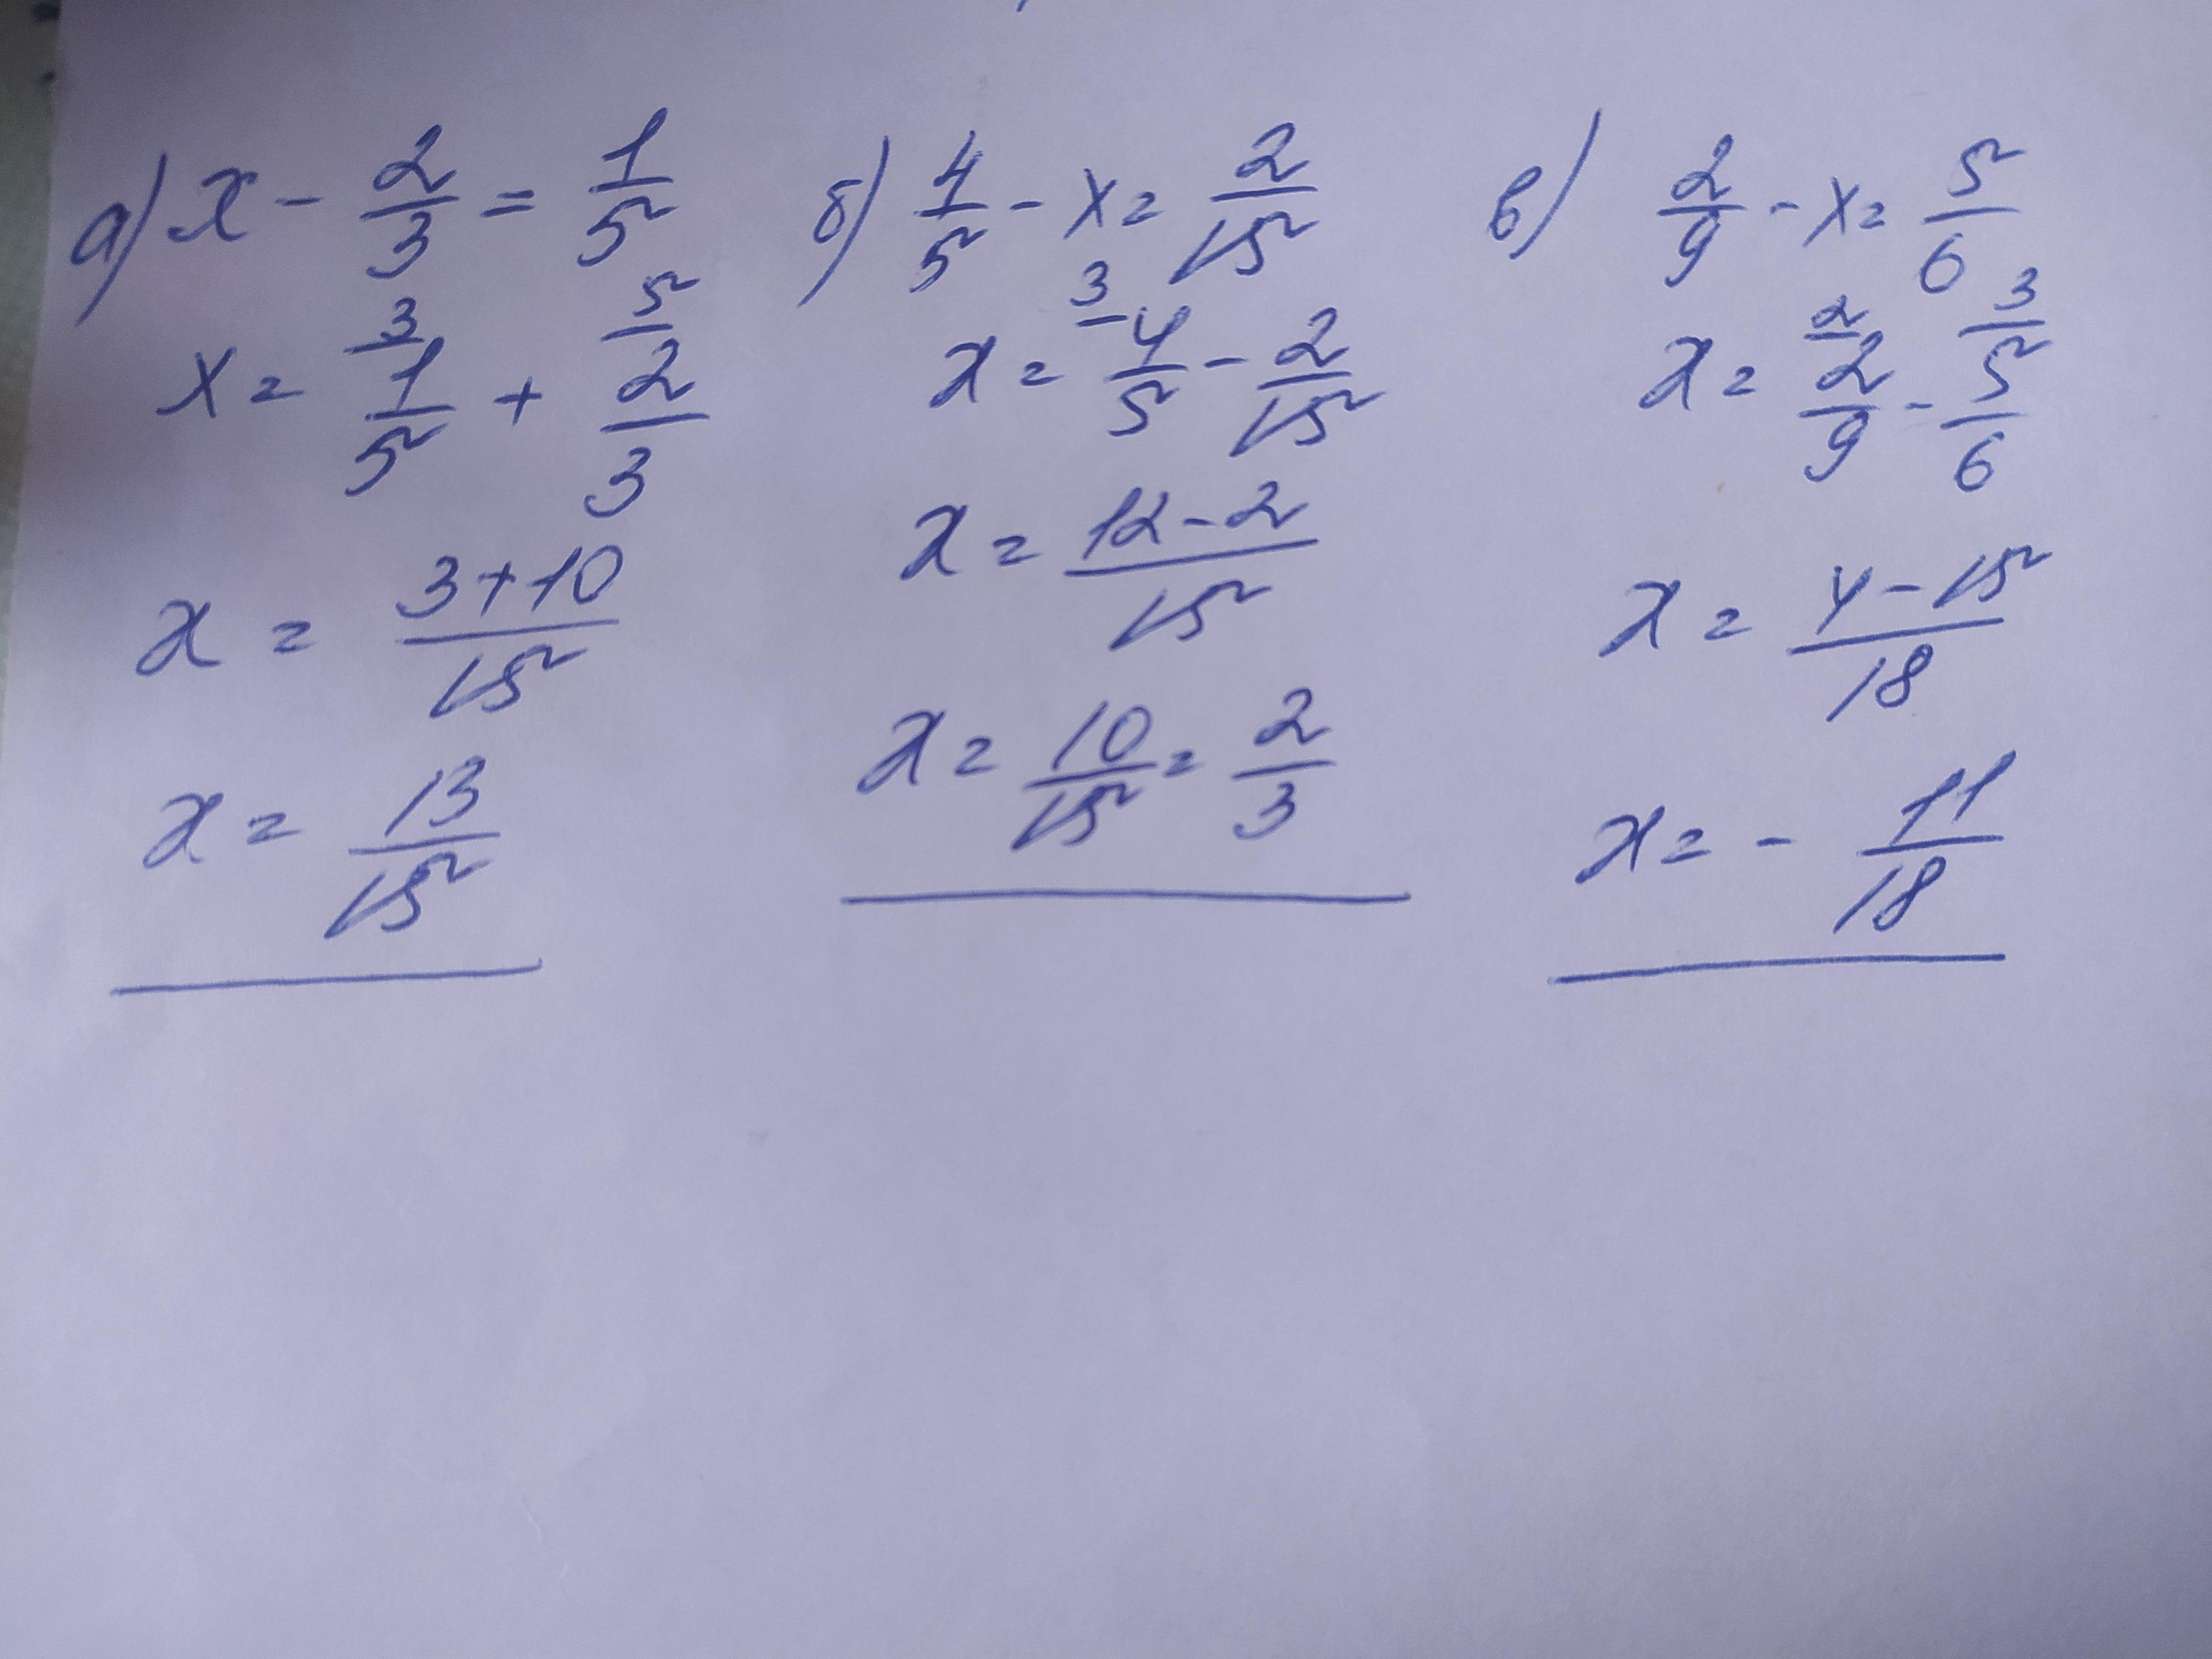 а) x - 2/3 = 1/5
x = 3/ 1/5 + 5/ 2/3
x = (3+10)/15
x = 13/15
б) 4/5 - x = 2/15
x = 3/ 4/5 - 2/15
x = (12-2)/15
x = 10/15 = 2/3
в) 2/9 - x = 5/6
x = 2/ 2/9 - 3/ 5/6
x = (4-15)/18
x = - 11/18